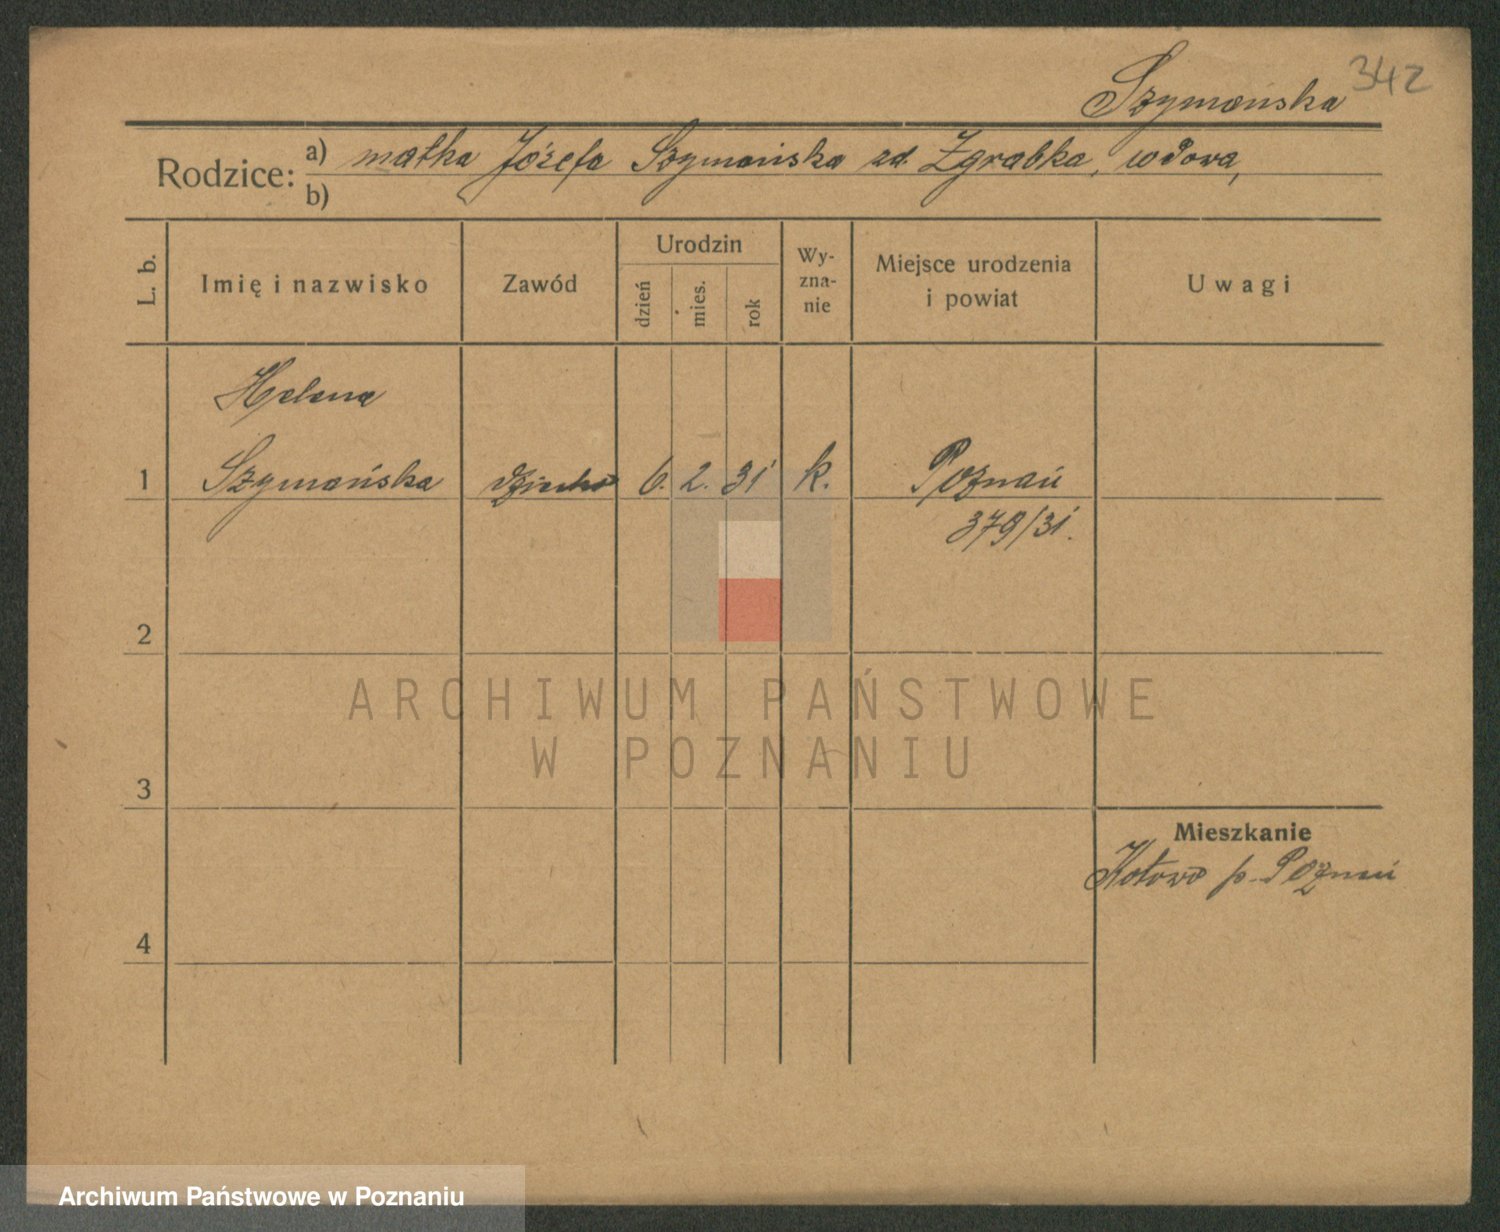 Szymańska 342
Rodzice: a) matka Józefa Szymańska zd. Zgrabka, wdowa,
b)
L. b. Imię i nazwisko Zawód Urodzin dzień mies. rok Wy-zna-nie Miejsce urodzenia i powiat Uwagi
Helena
1 Szymańska dziecko 6. 2. 31 k. Poznań
379/31.
2
3
Mieszkanie
Kotowo p. Poznań
4
ARCHIWUM PAŃSTWOWE
W POZNANIU
Archiwum Państwowe w Poznaniu